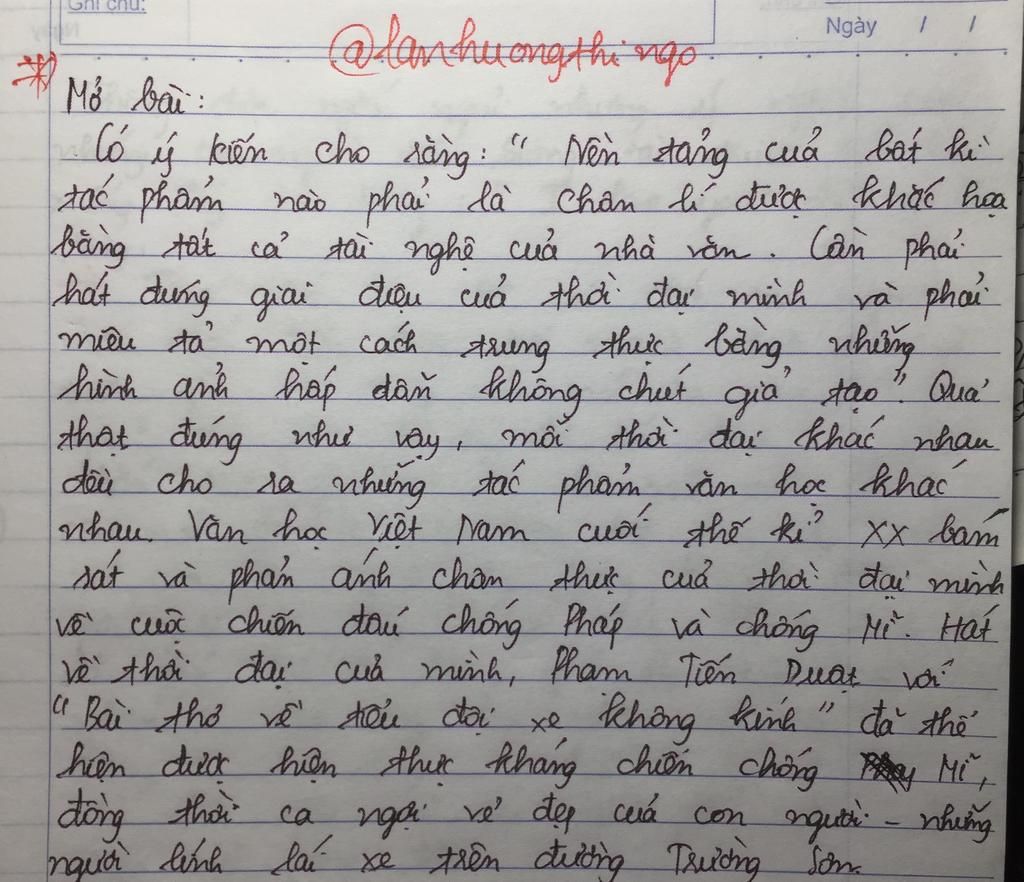 Ghi chú:
Ngày / /
@lanhuongthingo
Mở bài:
Có ý kiến cho rằng: "Nền tảng cuả bất kì
tác phẩm nào phải là chân lí được khắc họa
bằng tất cả tài nghệ cuả nhà văn. Cần phải
hát đúng giai điệu cuả thời đại mình và phải
miêu tả một cách trung thực bằng những
hình ảnh hấp dẫn không chút giả tạo". Quả
thật đúng như vậy, mỗi thời đại khác nhau
đều cho ra những tác phẩm văn học khác
nhau. Văn học Việt Nam cuối thế kỉ XX bám
sát và phản ánh chân thực cuả thời đại mình
về cuộc chiến đấu chống Pháp và chống Mĩ. Hát
về thời đại cuả mình, Phạm Tiến Duật với
"Bài thơ về tiểu đội xe không kính" đã thể
hiện được hiện thực kháng chiến chống Mĩ,
đồng thời ca ngợi vẻ đẹp cuả con người - những
người lính lái xe trên đường Trường Sơn.